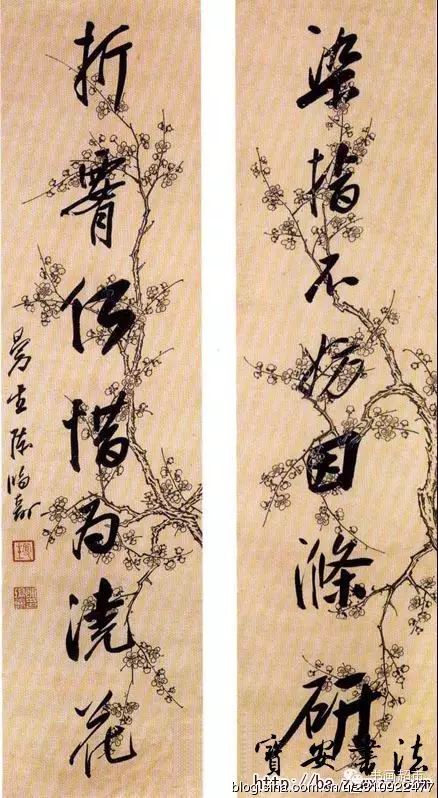 染指不妨因滌研
折腰何惜為澆花
曼生陳鴻壽
寶安書法
书画超市
blog.sina.com.cn/u/2919922477